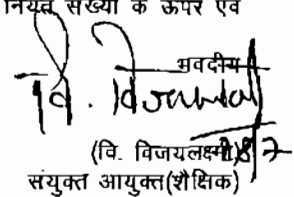 नियत संख्या के ऊपर एवं
भवदीय
वि.
(वि. विजयलक्ष्मी)
संयुक्त आयुक्त(शैक्षिक)